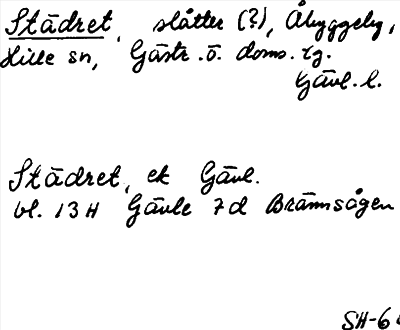 Städret, slåtter (?), Åbyggeby,
Hille sn, Gästr. ö. doms. tg.
Gävl. l.
Städret, ek Gävl.
bl. 13 H Gävle 7d Brännsågen
SH-6